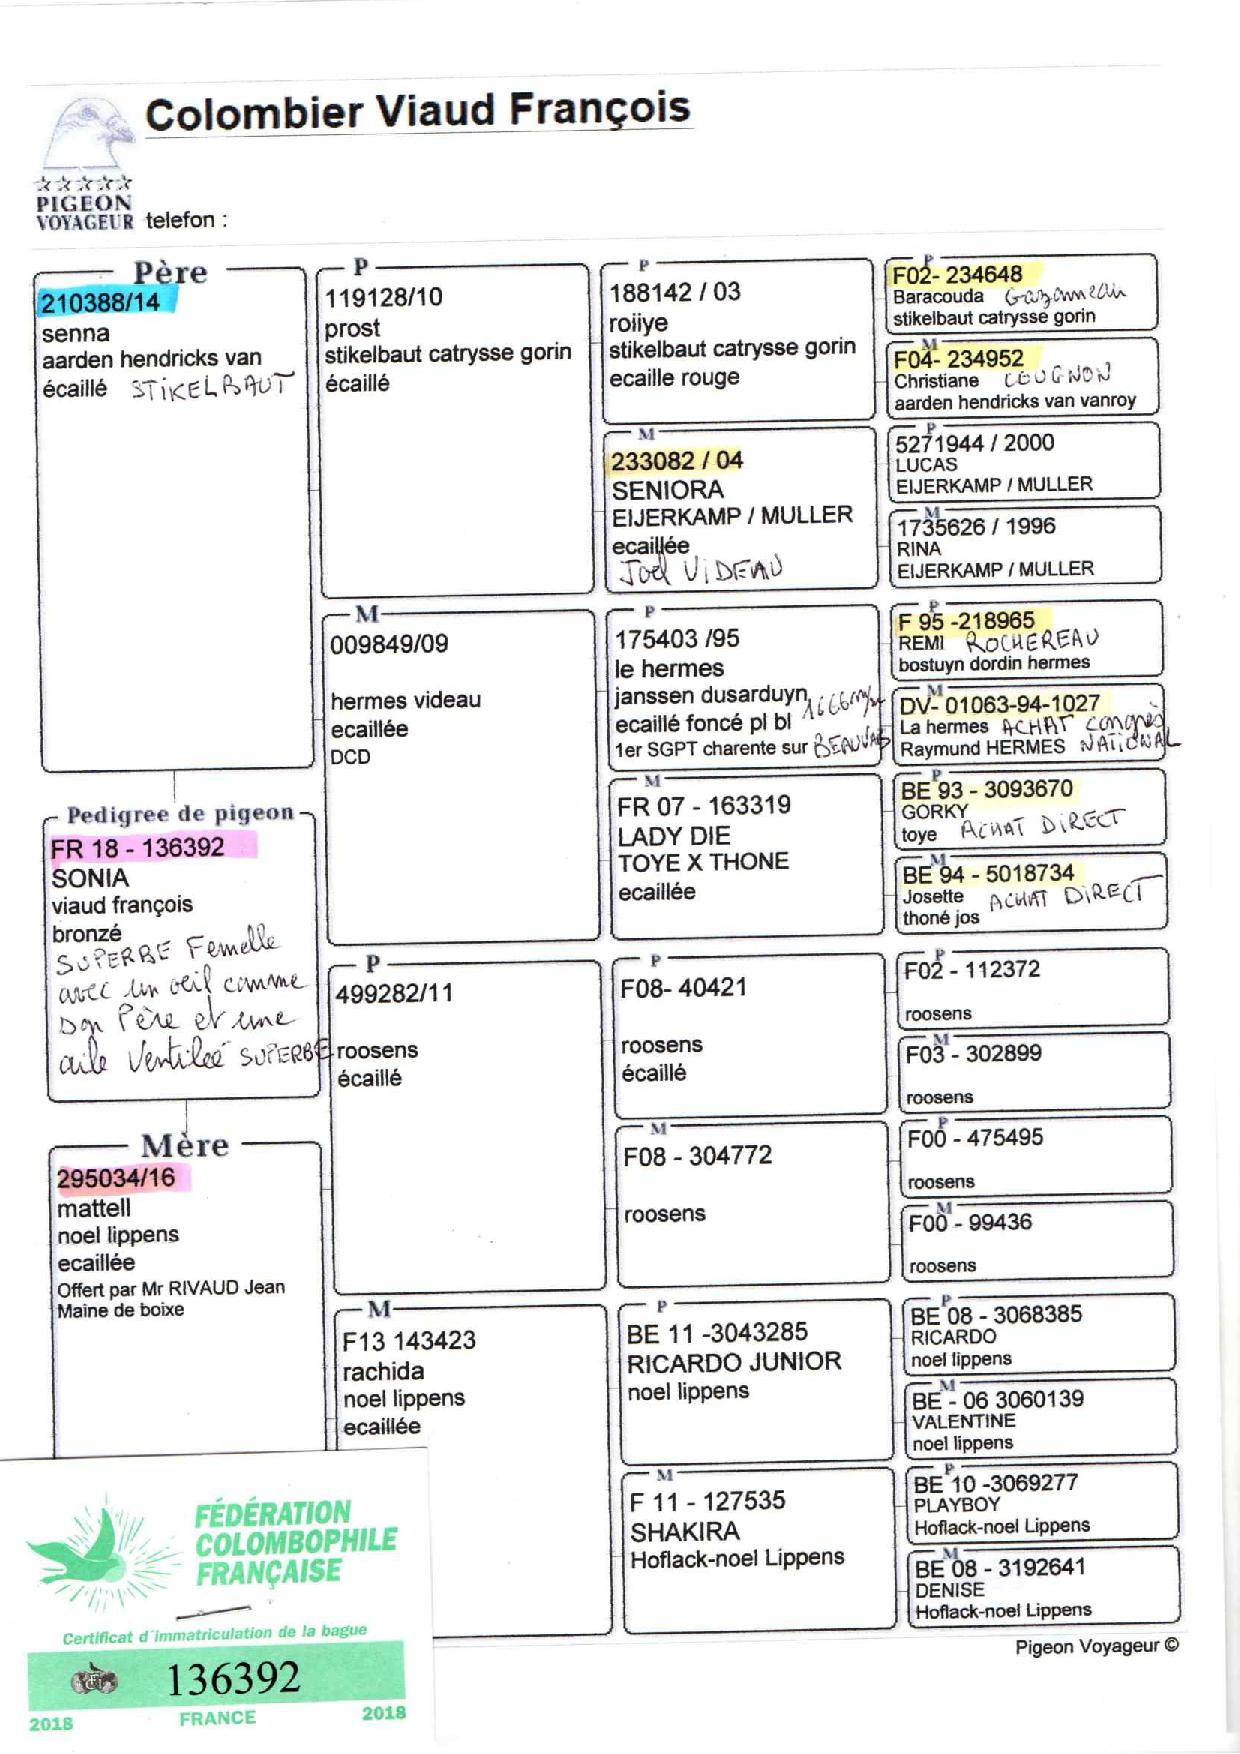 Colombier Viaud François
PIGEON
VOYAGEUR
telefon :
Père
210388/14
senna
aarden hendricks van
écaillé STIKELBAUT
Pedigree de pigeon
FR 18 - 136392
SONIA
viaud françois
bronzé
SUPERBE Femelle
avec un oeil comme
son Père et une
aile Ventileé SUPERBE
Mère
295034/16
mattell
noel lippens
ecaillée
Offert par Mr RIVAUD Jean
Maine de boixe
P
119128/10
prost
stikelbaut catrysse gorin
écaillé
M
009849/09
hermes videau
ecaillée
DCD
P
499282/11
roosens
écaillé
M
F13 143423
rachida
noel lippens
ecaillée
P
188142 / 03
roiiye
stikelbaut catrysse gorin
ecaille rouge
M
233082 / 04
SENIORA
EIJERKAMP / MULLER
ecaillée
Joel VIDEAU
P
175403 /95
le hermes
janssen dusarduyn
ecaillé foncé pl bl 1666m/
1er SGPT charente sur BEAUVAIS
M
FR 07 - 163319
LADY DIE
TOYE X THONE
ecaillée
P
F08- 40421
roosens
écaillé
M
F08 - 304772
roosens
P
BE 11 -3043285
RICARDO JUNIOR
noel lippens
M
F 11 - 127535
SHAKIRA
Hoflack-noel Lippens
P
F02- 234648
Baracouda
stikelbaut catrysse gorin
M
F04- 234952
Christiane COUGNON
aarden hendricks van vanroy
P
5271944 / 2000
LUCAS
EIJERKAMP / MULLER
M
1735626 / 1996
RINA
EIJERKAMP / MULLER
P
F 95 -218965
REMI ROCHEREAU
bostuyn dordin hermes
M
DV- 01063-94-1027
La hermes ACHAT Congrès
Raymund HERMES NATIONAL
P
BE 93 - 3093670
GORKY
toye ACHAT DIRECT
M
BE 94 - 5018734
Josette ACHAT DIRECT
thoné jos
P
F02 - 112372
roosens
M
F03 - 302899
roosens
P
F00 - 475495
roosens
M
F00 - 99436
roosens
P
BE 08 - 3068385
RICARDO
noel lippens
M
BE - 06 3060139
VALENTINE
noel lippens
P
BE 10 -3069277
PLAYBOY
Hoflack-noel Lippens
M
BE 08 - 3192641
DENISE
Hoflack-noel Lippens
Pigeon Voyageur ©
FÉDÉRATION
COLOMBOPHILE
FRANÇAISE
Certificat d'immatriculation de la bague
136392
2018 FRANCE 2018